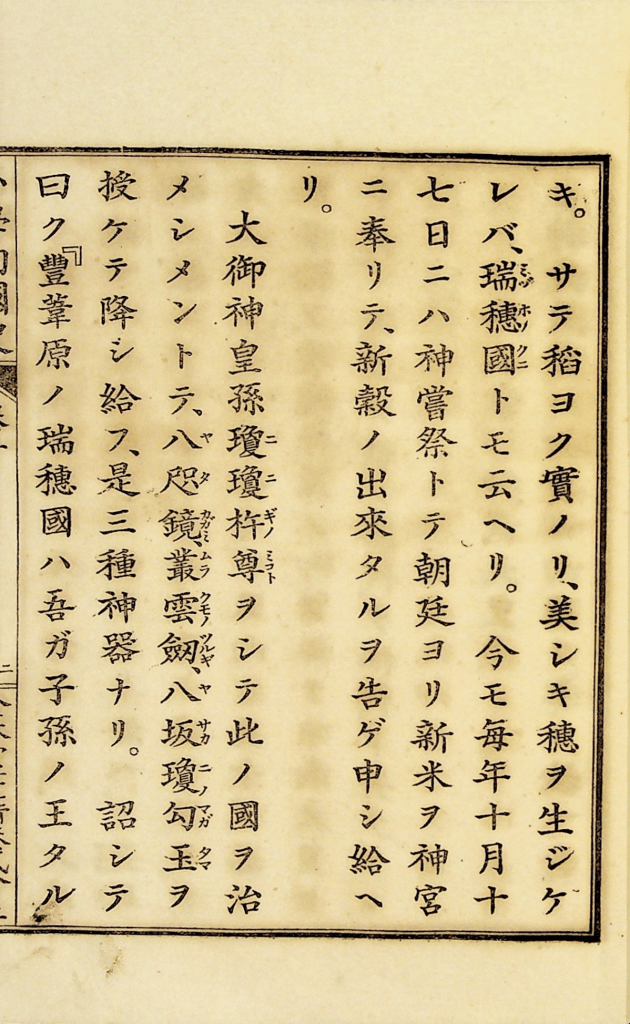 キ。　サテ稻ヨク實ノリ、美シキ穗ヲ生ジケ
レバ、瑞穗國トモ云ヘリ。　今モ每年十月十
七日ニハ神嘗祭トテ朝廷ヨリ新米ヲ神宮
ニ奉リテ、新穀ノ出來タルヲ吿ゲ申シ給ヘ
リ。
大御神皇孫瓊瓊杵尊ヲシテ此ノ國ヲ治
メシメントテ、八咫鏡、叢雲劔、八坂瓊勾玉ヲ
授ケテ降シ給フ、是三種神器ナリ。　詔シテ
曰ク『豐葦原ノ瑞穗國ハ吾ガ子孫ノ王タル